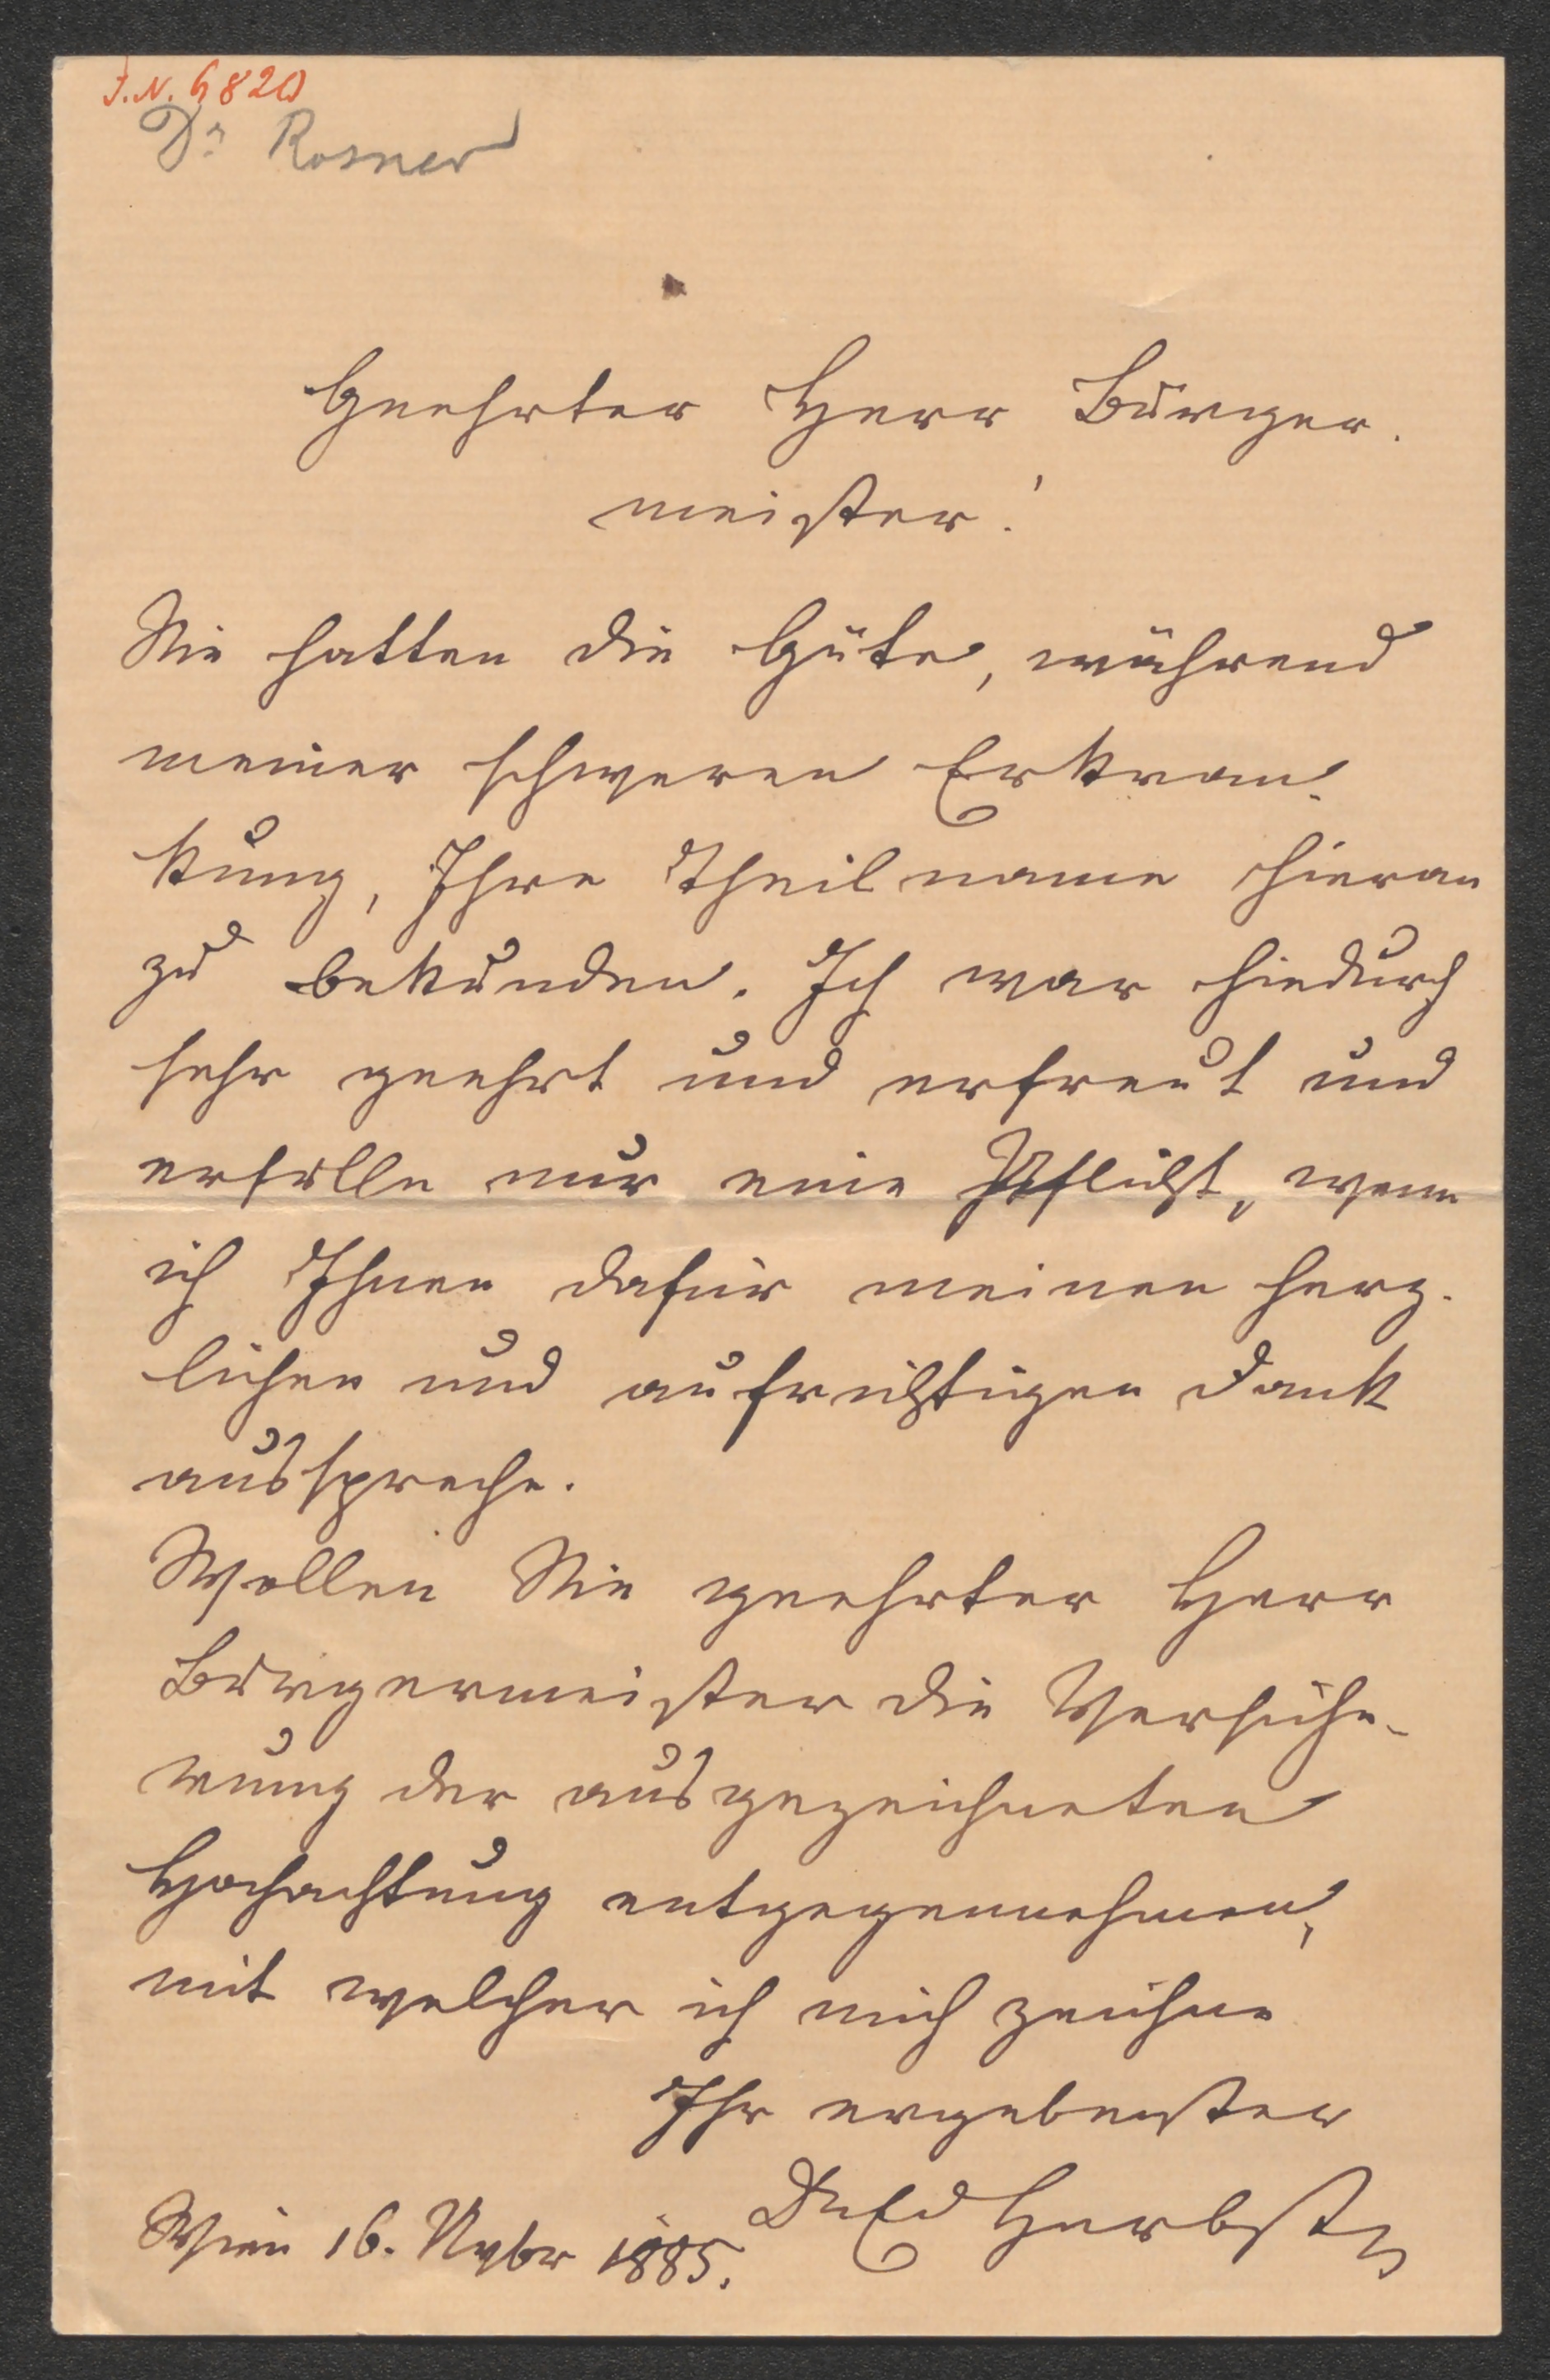 I.N. 6820
Dr Rosner
Geehrter Herr Bürger-
meister!
Sie hatten die Güte, während
meiner schweren Erkran-
kung, Ihre Theilname hieran
zu bekunden. Ich war hiedurch
sehr geehrt und erfreut und
erfülle nur eine Pflicht, wenn
ich Ihnen dafür meinen herz-
lichen und aufrichtigen Dank
ausspreche.
Wollen Sie geehrter Herr
Bürgermeister die Versiche-
rung der ausgezeichneten
Hochachtung entgegennehmen,
mit welcher ich mich zeichne
Ihr ergebenster
Dr Ed Herbst
Wien 16. Novbr 1885.